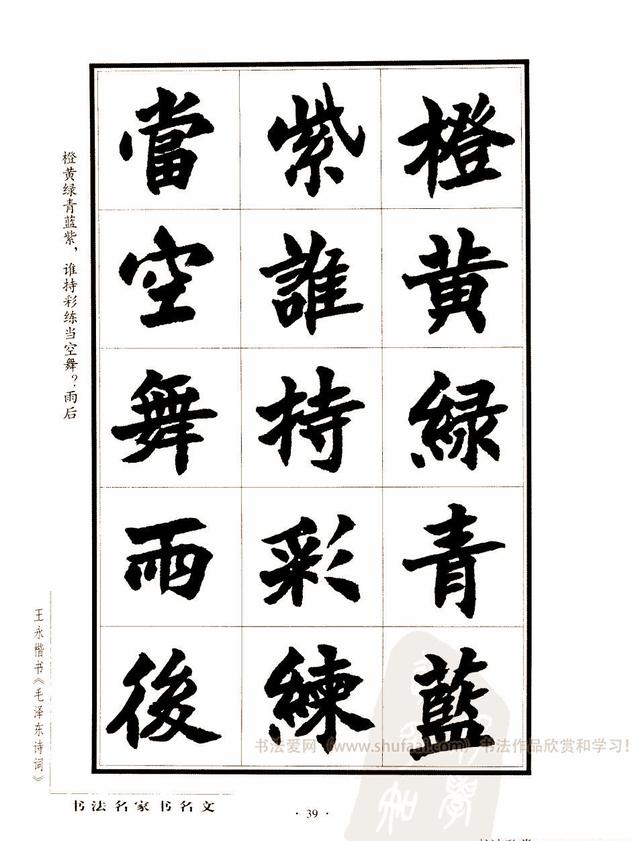 橙黄緑青藍
紫誰持彩練
當空舞雨後
橙黄绿青蓝紫，谁持彩练当空舞？雨后
王永楷书《毛泽东诗词》
书法名家书名文
· 39 ·
书法爱网（www.shufaai.com）书法作品欣赏和学习！